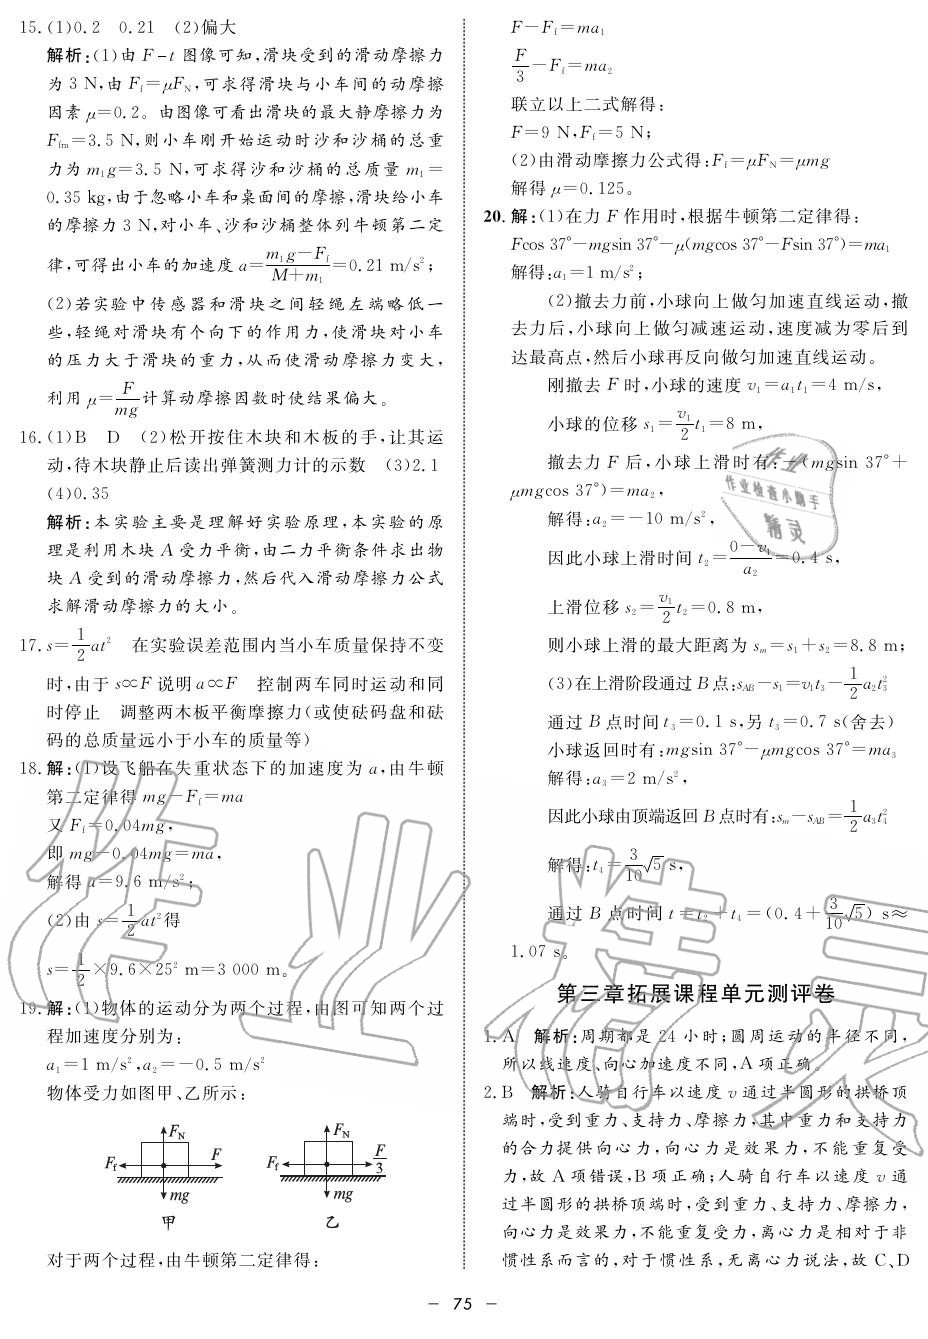 15.(1)0.2　0.21　(2)偏大
解析:(1)由 F-t 图像可知,滑块受到的滑动摩擦力
为 3 N,由 Ff=μFN,可求得滑块与小车间的动摩擦
因素 μ=0.2。由图像可看出滑块的最大静摩擦力为
Ffm=3.5 N,则小车刚开始运动时沙和沙桶的总重
力为 m₁g=3.5 N,可求得沙和沙桶的总质量 m₁=
0.35 kg,由于忽略小车和桌面间的摩擦,滑块给小车
的摩擦力 3 N,对小车、沙和沙桶整体列牛顿第二定
律,可得出小车的加速度 a=(m₁g-Ff)/(M+m₁)=0.21 m/s²;
(2)若实验中传感器和滑块之间轻绳左端略低一
些,轻绳对滑块有个向下的作用力,使滑块对小车
的压力大于滑块的重力,从而使滑动摩擦力变大,
利用 μ=F/mg 计算动摩擦因数时使结果偏大。
16.(1)B　D　(2)松开按住木块和木板的手,让其运
动,待木块静止后读出弹簧测力计的示数　(3)2.1
(4)0.35
解析:本实验主要是理解好实验原理,本实验的原
理是利用木块 A 受力平衡,由二力平衡条件求出物
块 A 受到的滑动摩擦力,然后代入滑动摩擦力公式
求解滑动摩擦力的大小。
17.s=1/2at²　在实验误差范围内当小车质量保持不变
时,由于 s∝F 说明 a∝F　控制两车同时运动和同
时停止　调整两木板平衡摩擦力(或使砝码盘和砝
码的总质量远小于小车的质量等)
18.解:(1)设飞船在失重状态下的加速度为 a,由牛顿
第二定律得 mg-Ff=ma
又 Ff=0.04mg,
即 mg-0.04mg=ma,
解得 a=9.6 m/s²;
(2)由 s=1/2at²得
s=1/2×9.6×25² m=3 000 m。
19.解:(1)物体的运动分为两个过程,由图可知两个过
程加速度分别为:
a₁=1 m/s²,a₂=-0.5 m/s²
物体受力如图甲、乙所示:
FN Ff F mg 甲
FN Ff F/3 mg 乙
对于两个过程,由牛顿第二定律得:
F-Ff=ma₁
F/3-Ff=ma₂
联立以上二式解得:
F=9 N,Ff=5 N;
(2)由滑动摩擦力公式得:Ff=μFN=μmg
解得 μ=0.125。
20.解:(1)在力 F 作用时,根据牛顿第二定律得:
Fcos 37°-mgsin 37°-μ(mgcos 37°-Fsin 37°)=ma₁
解得:a₁=1 m/s²;
(2)撤去力前,小球向上做匀加速直线运动,撤
去力后,小球向上做匀减速运动,速度减为零后到
达最高点,然后小球再反向做匀加速直线运动。
刚撤去 F 时,小球的速度 v₁=a₁t₁=4 m/s,
小球的位移 s₁=v₁/2 t₁=8 m,
撤去力 F 后,小球上滑时有:-(mgsin 37°+
μmgcos 37°)=ma₂,
解得:a₂=-10 m/s²,
因此小球上滑时间 t₂=(0-v₁)/a₂=0.4 s,
上滑位移 s₂=v₁/2 t₂=0.8 m,
则小球上滑的最大距离为 sm=s₁+s₂=8.8 m;
(3)在上滑阶段通过 B 点:sAB-s₁=v₁t₃-1/2a₂t₃²
通过 B 点时间 t₃=0.1 s,另 t₃=0.7 s(舍去)
小球返回时有:mgsin 37°-μmgcos 37°=ma₃
解得:a₃=2 m/s²,
因此小球由顶端返回 B 点时有:sm-sAB=1/2a₃t₄²
解得:t₄=3/10√5 s,
通过 B 点时间 t=t₂+t₄=(0.4+3/10√5) s≈
1.07 s。
第三章拓展课程单元测评卷
1.A　解析:周期都是 24 小时;圆周运动的半径不同,
所以线速度、向心加速度不同,A 项正确。
2.B　解析:人骑自行车以速度 v 通过半圆形的拱桥顶
端时,受到重力、支持力、摩擦力,其中重力和支持力
的合力提供向心力,向心力是效果力,不能重复受
力,故 A 项错误,B 项正确;人骑自行车以速度 v 通
过半圆形的拱桥顶端时,受到重力、支持力、摩擦力,
向心力是效果力,不能重复受力,离心力是相对于非
惯性系而言的,对于惯性系,无离心力说法,故 C、D
— 75 —
作业
作业检查小助手
精灵
作业精灵